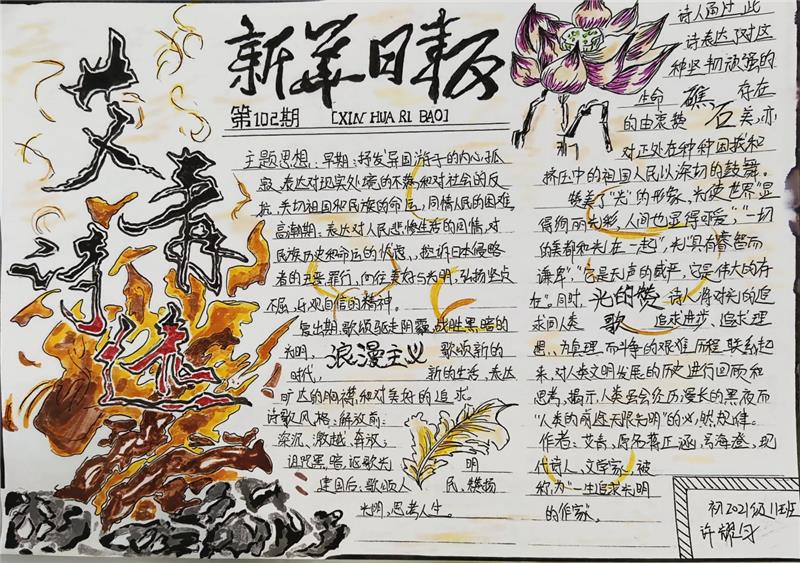 艾青诗选
新华日报
第102期 [XIN HUA RI BAO]
主题思想：早期：抒发异国游子的内心孤
寂，表达对现实处境的不满和对社会的反
抗，关切祖国和民族的命运，同情人民的困难。
高潮期：表达对人民悲惨生活的同情，对
民族历史和命运的忧虑，控诉日本侵略
者的丑恶罪行，向往美好与光明，弘扬坚贞
不屈，乐观自信的精神。
复出期，歌颂驱走阴霾，战胜黑暗的
光明， 浪漫主义 歌颂新的
时代， 新的生活，表达
旷达的胸襟和对美好的追求。
诗歌风格：解放前：
深沉、激越、奔放；
诅咒黑暗，讴歌光 明
建国后：歌颂人 民，赞扬
光明，思考人生。
诗人通过此
诗表达了对这
种坚韧顽强的
生命 礁 存在
的由衷赞 石 美，亦
对正处在种种困扰和
挤压中的祖国人民以深切的鼓舞。
赞美了“光”的形象，光使世界“显
得绚丽光彩，人间也显得可爱”“一切
的美都和光在一起”，光“具有睿智而
谦卑”，“它是无声的威严，它是伟大的存
在”。同时， 光的赞 诗人将对光的追
求同人类 歌 追求进步、追求理
想、为真理而斗争的艰难历程联系起
来，对人类文明发展的历史进行回顾和
思考，揭示人类虽会经历漫长的黑夜而
“人类的前途无限光明”的必然规律。
作者：艾青，原名蒋正涵，号海澄，现
代诗人、文学家，被
称为“一生追求光明
的作家。
初2021级11班